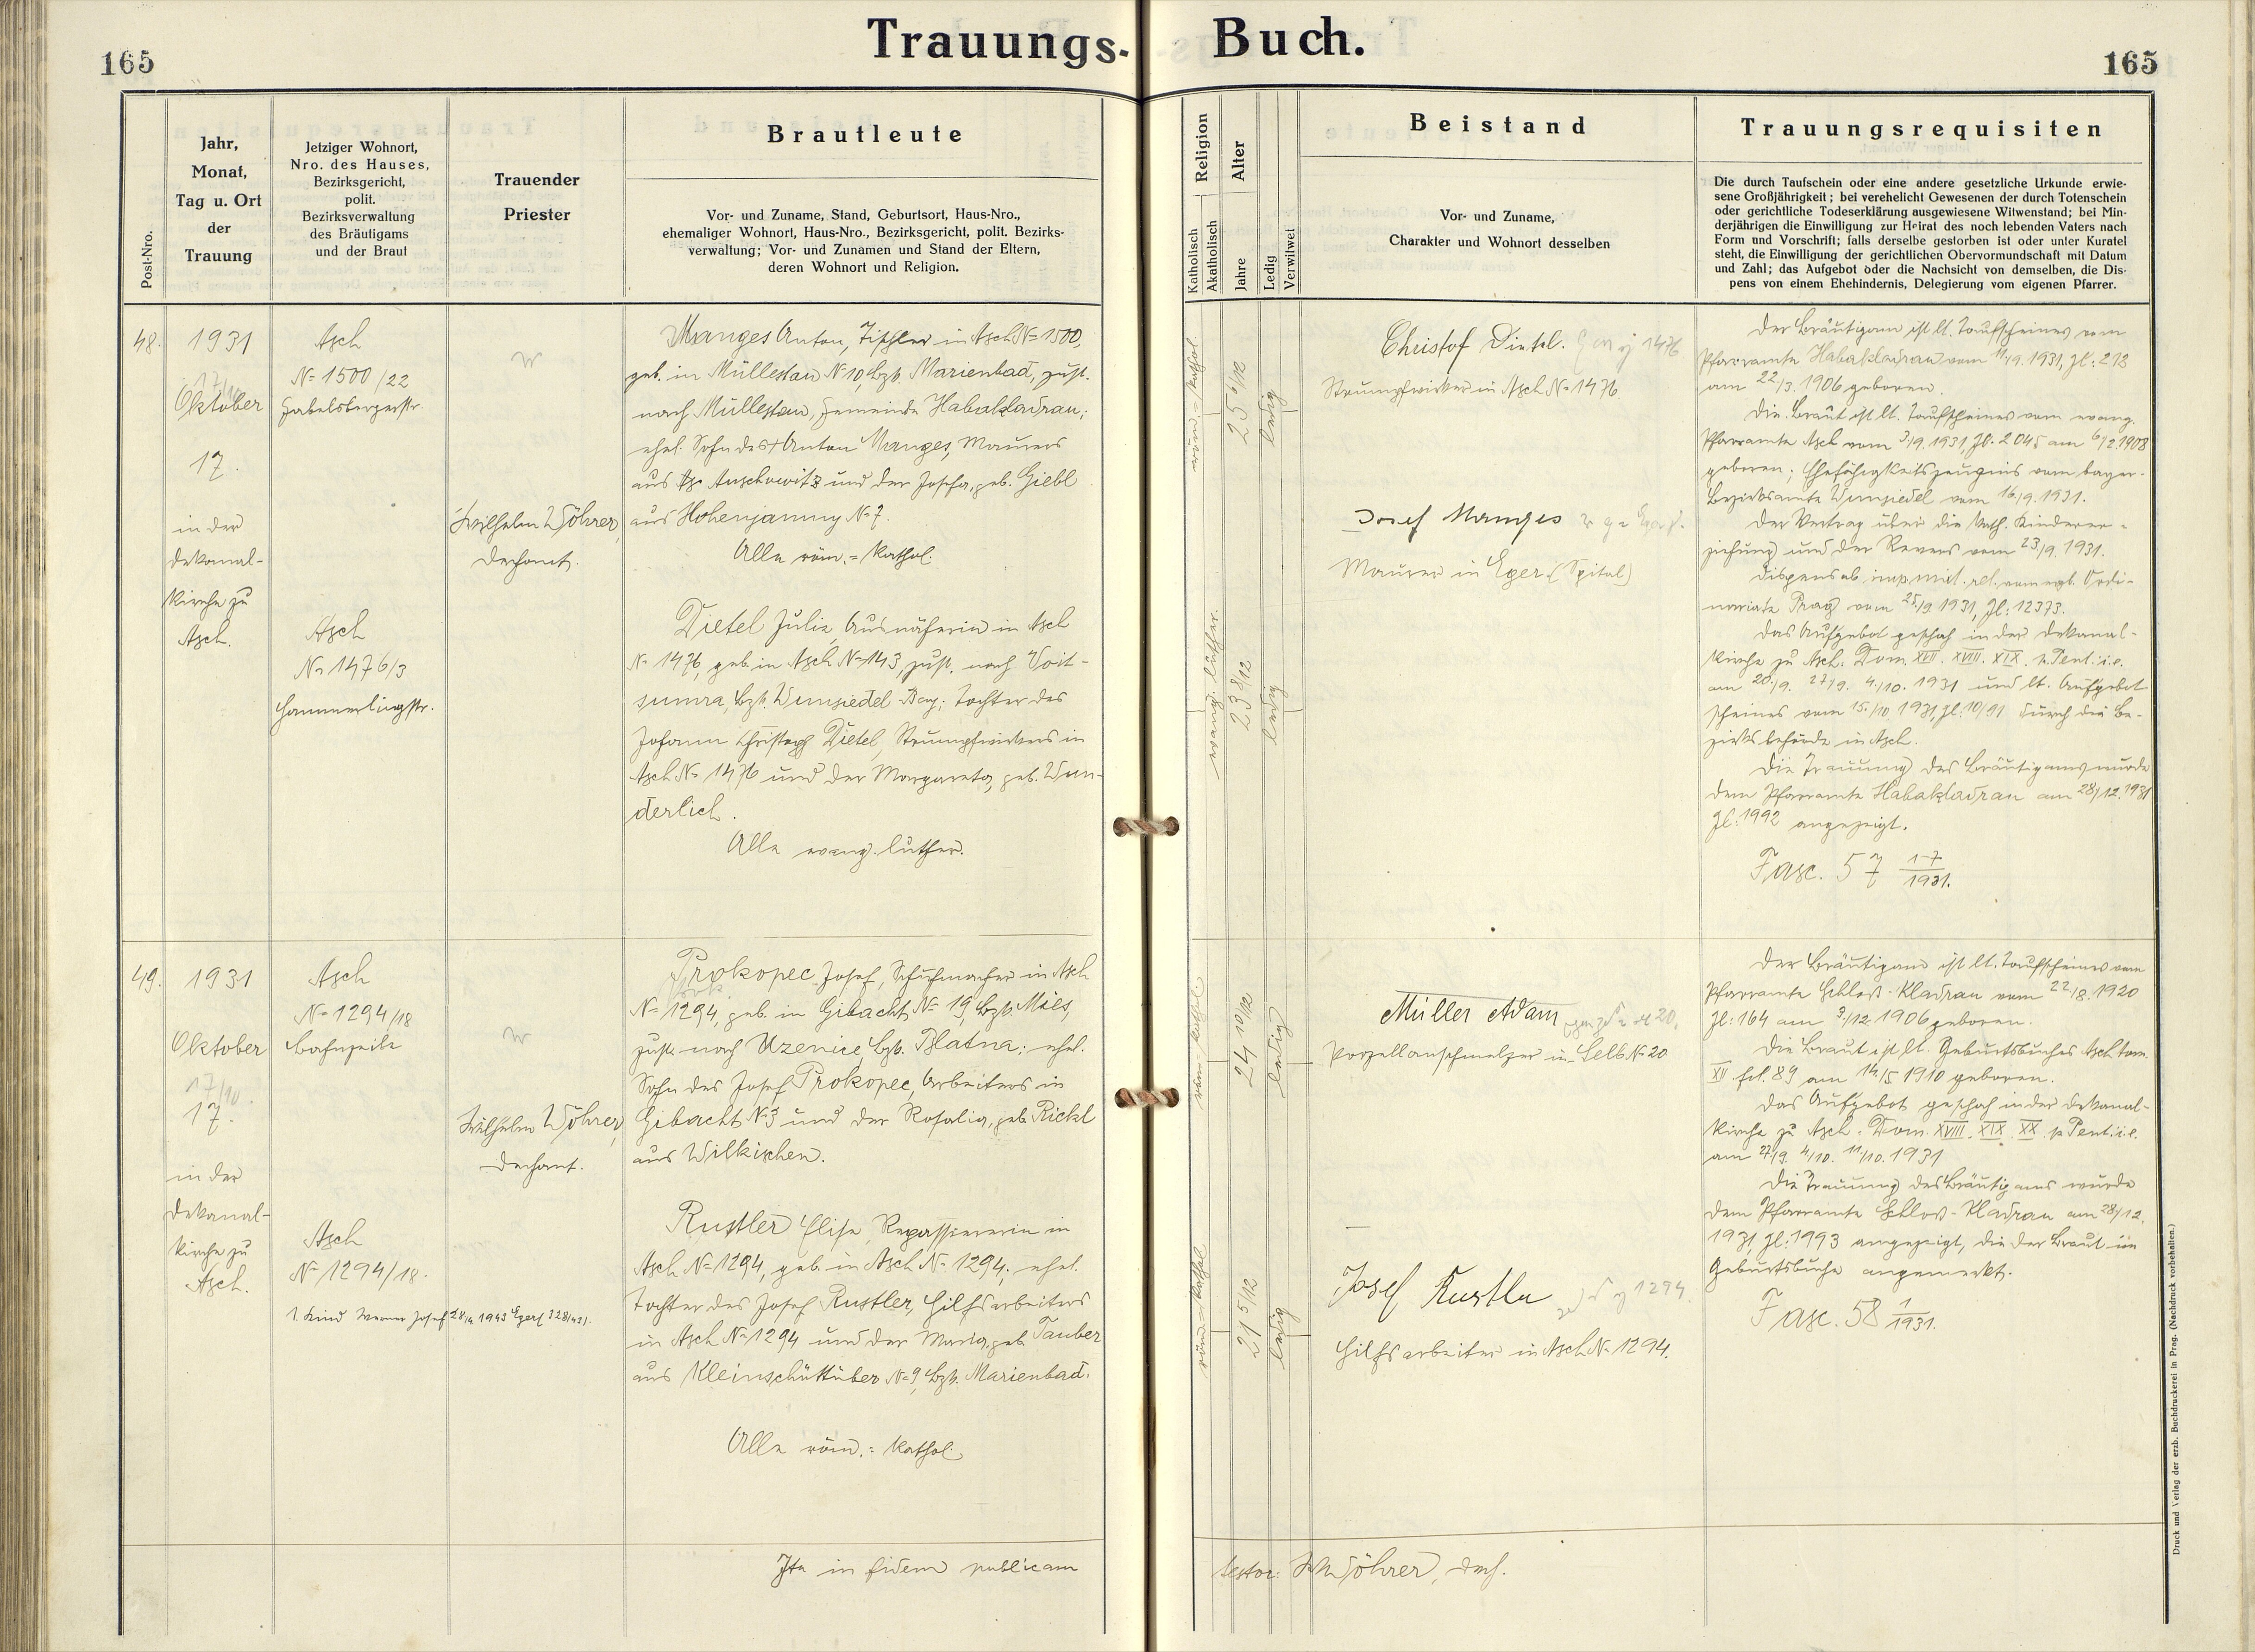 165
Trauungs-Buch.
165
Post-Nro.
Jahr,
Monat,
Tag u. Ort
der
Trauung
Jetziger Wohnort,
Nro. des Hauses,
Bezirksgericht,
polit.
Bezirksverwaltung
des Bräutigams
und der Braut
Trauender
Priester
Brautleute
Vor- und Zuname, Stand, Geburtsort, Haus-Nro.,
ehemaliger Wohnort, Haus-Nro., Bezirksgericht, polit. Bezirks-
verwaltung; Vor- und Zunamen und Stand der Eltern,
deren Wohnort und Religion.
Religion
Katholisch
Akatholisch
Alter
Jahre
Ledig
Verwitwet
Beistand
Vor- und Zuname,
Charakter und Wohnort desselben
Trauungsrequisiten
Die durch Taufschein oder eine andere gesetzliche Urkunde erwie-
sene Großjährigkeit; bei verehelicht Gewesenen der durch Totenschein
oder gerichtliche Todeserklärung ausgewiesene Witwenstand; bei Min-
derjährigen die Einwilligung zur Heirat des noch lebenden Vaters nach
Form und Vorschrift; falls derselbe gestorben ist oder unter Kuratel
steht, die Einwilligung der gerichtlichen Obervormundschaft mit Datum
und Zahl; das Aufgebot oder die Nachsicht von demselben, die Dis-
pens von einem Ehehindernis, Delegierung vom eigenen Pfarrer.
48.
1931
17/10
Oktober
17.
in der
Dekanal-
kirche zu
Asch.
Asch
No 1500/22
Gabelsbergerstr.
Asch
No 1476/3
Hammerlingstr.
Wilhelm Wöhrer,
Dechant.
Manges Anton, Tischler in Asch No 1500,
geb. in Müllestau No 10, Bzk. Marienbad, zust.
nach Müllestau, Gemeinde Habakladrau;
ehel. Sohn des + Anton Manges, Maurers
aus Auschowitz und der Josefa, geb. Giebl
aus Hohenjamny No 7.
Alle röm.=kathol.
Dietel Julie, Ausnäherin in Asch
No 1476, geb. in Asch No 143, zust. nach Voit-
sumra, Bzk. Wunsiedel Bay; Tochter des
Johann Christoph Dietel, Strumpfwirkers in
Asch No 1476 und der Margareta, geb. Wun-
derlich.
Alle evang. luther.
röm.=kathol.
25 6/12
ledig
evang. luther.
23 8/12
ledig
Christof Dietel. 1476
Strumpfwirker in Asch No 1476
Josef Manges
Maurer in Eger (Spital)
Der Bräutigam ist lt. Taufscheines vom
Pfarramte Habakladrau vom 11/9. 1931, Zl: 212
am 22/3. 1906 geboren.
Die Braut ist lt. Taufscheines vom evang.
Pfarramte Asch vom 3/9. 1931, Zl. 2045 am 6/2 1908
geboren; Ehefähigkeitszeugnis vom bayer.
Bezirksamte Wunsiedel vom 16/9. 1931.
Der Vertrag über die kath. Kinderer-
ziehung und der Revers vom 23/9. 1931.
Dispens ab imp. mixt. rel. vom erzb. Ordi-
nariate Prag vom 25/9 1931, Zl: 12373.
Das Aufgebot geschah in der Dekanal-
kirche zu Asch. Dom. XVII. XVIII. XIX. p. Pent. i. e.
am 20/9. 27/9. 4/10. 1931 und lt. Aufgebot-
scheines vom 15./10 1931, Zl: 10/91 durch die Be-
zirksbehörde in Asch.
Die Trauung des Bräutigams wurde
dem Pfarramte Habakladrau am 28/12. 1931
Zl: 1992 angezeigt.
Fasc. 57 1-7/1931.
49.
1931
Oktober
17/10.
17.
in der
Dekanal-
kirche zu
Asch.
Asch
No 1294/18
Bahnzeile
Asch
No 1294/18.
1. Kind Werner Josef 28/4 1943 Eger
Wilhelm Wöhrer,
Dechant.
Prokopec Josef, Schuhmacher in Asch
No 1294, geb. in Gibacht No 19, Bzk. Mies,
zust. nach Uzenice, Bzk. Blatna; ehel.
Sohn des Josef Prokopec, Arbeiters in
Gibacht No 3 und der Rosalia, geb. Rickl
aus Wilkischen.
Rustler Elise, Repassiererin in
Asch No 1294, geb. in Asch No 1294; ehel.
Tochter des Josef Rustler, Hilfsarbeiters
in Asch No 1294 und der Maria, geb. Tauber
aus Kleinschüttüber No 9, Bzk. Marienbad.
Alle röm.=kathol.
röm.=kathol.
24 10/12
ledig
röm.=kathol.
21 5/12
ledig
Müller Adam
Porzellanschmelzer in Selb No 20
Josef Rustler 1294.
Hilfsarbeiter in Asch No 1294.
Der Bräutigam ist lt. Taufscheines vom
Pfarramte Schloß-Kladrau vom 22/8. 1920
Zl: 164 am 3/12. 1906 geboren.
Die Braut ist lt. Geburtsbuches Asch tom.
XV. fol. 89 am 14/5 1910 geboren.
Das Aufgebot geschah in der Dekanal-
kirche zu Asch. Dom. XVIII. XIX. XX. p. Pent. i. e.
am 27/9. 4/10. 11/10. 1931
Die Trauung des Bräutigams wurde
dem Pfarramte Schloß-Kladrau am 28/12.
1931, Zl: 1993 angezeigt, die der Braut im
Geburtsbuche angemerkt.
Fasc. 58 1/1931.
Ita in fidem publicam
testor: W. Wöhrer, Dech.
Druck und Verlag der erzb. Buchdruckerei in Prag. (Nachdruck vorbehalten.)